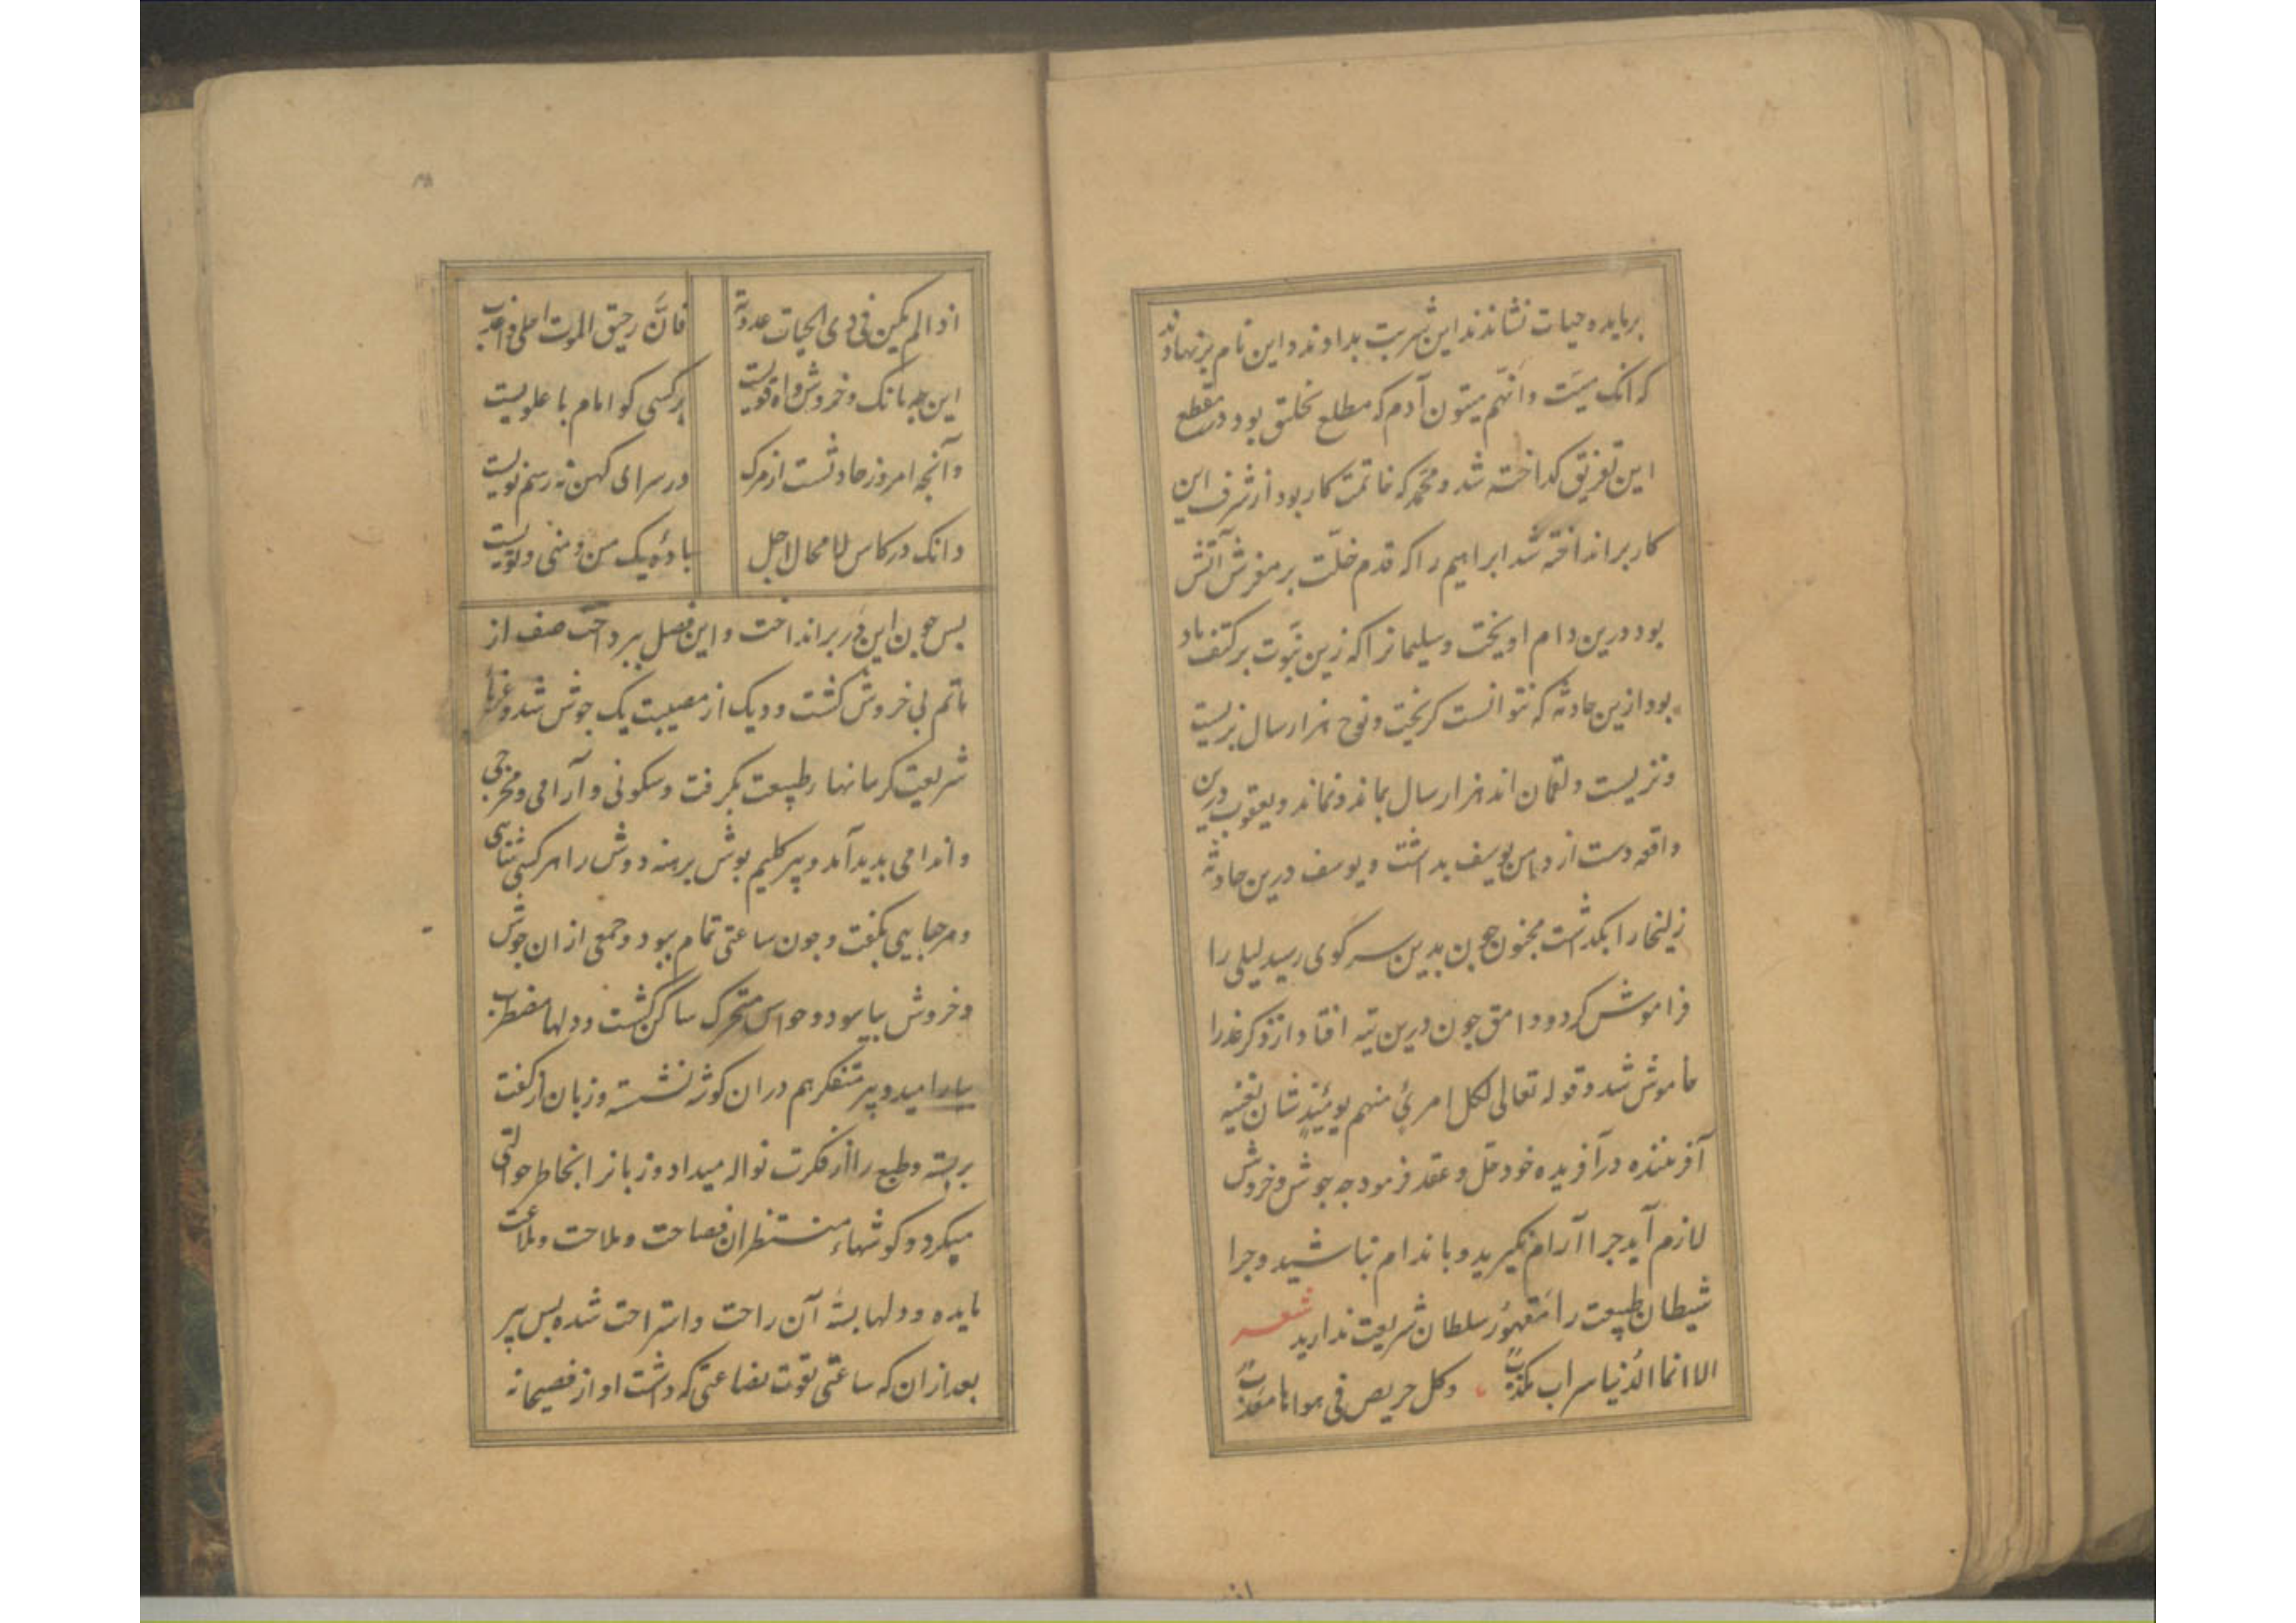 برمایده حیات نشاندند این شربت بدادند و این نام برنهادند
که انک میت و انهم میتون آدم که مطلع تخلیق بود در مقطع
این تفریق کداخته شد و محمد که خاتمت کار بود از شرف این
کار برانداخته شد ابراهیم را که قدم خلّت بر مفرش آتش
بود درین دام اویخت و سلیمانرا که زین نبوّت بر کتف باد
بود ازین حادثه که نتوانست کریخت و نوح هزار سال بزیست
ونزیست و لقمان اند هزار سال بماند و نماند و یعقوب درین
واقعه دست از دامن یوسف بداشت و یوسف درین حادثه
زلیخا را بکذاشت مجنون چون بدین سر کوی رسید لیلی را
فراموش کرد و وامق چون درین تیه افتاد از ذکر عذرا
خاموش شد و قوله تعالی لکل امرئ منهم یومئذ شان یغنیه
آفریننده در آفریده خود حل و عقد فرمود چه جوش و خروش
لازم آید چرا آرام نکیرید و باندام نباشید و چرا
شیطان طبیعت را مقهور سلطان شریعت ندارید شعر
الا انما الدنیا سراب مکذب وکل حریص فی هواها معذب
اذا لم یکن فی ذی الحیات عذوبة فانّ رحیق الموت احلی واعذب
این چه بانک و خروش و اه قویست بر کسی کو امام با علویست
وآنچه امروز حادثست از مرک در سرای کهن نه رسم نویست
وانک در کاس لا محال اجل باده یک من و منی و تویست
بس چون این در برانداخت و این فصل ببرداخت صف از
ماتم بی خروش کشت و دیک از مصیبت یک جوش شد و عزیا
شریعت کرمانها رطبیعت بکرفت و سکونی و آرامی و مخرجی
واندامی بدید آمد و پیر کلیم بوش برهنه دوش را هر کسی ثنایی
ومرحبایی بکفت و چون ساعتی تمام ببود و جمعی ازان جوش
وخروش بیاسود و حواس متحرک ساکن کشت و دلها مضطرب
بیارامید و پیر متفکر هم دران کوشه نشسته و زبان از کفت
بربسته وطبع را از فکرت نواله میداد و زبانرا بخاطر حوالتی
میکرد و کوشهاء منتظران فصاحت و ملاحت و بلاغت
مایده و دلها بسته آن راحت و استراحت شده بس پیر
بعد ازان که ساعتی بقوت بضاعتی که داشت اواز فصیحانه